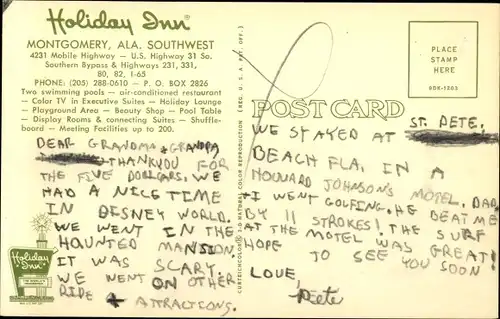 Holiday Inn®
MONTGOMERY, ALA. SOUTHWEST
4231 Mobile Highway — U.S. Highway 31 So.
Southern Bypass & Highways 231, 331,
80, 82, I-65
PHONE: (205) 288-0610 — P. O. BOX 2826
Two swimming pools — air-conditioned restaurant
— Color TV in Executive Suites — Holiday Lounge
— Playground Area — Beauty Shop — Pool Table
— Display Rooms & connecting Suites — Shuffle-
board — Meeting Facilities up to 200.
DEAR GRANDMA & GRANDPA
THANKYOU FOR
THE FIVE DOLLARS. WE
HAD A NICE TIME
IN DISNEY WORLD.
WE WENT IN THE
HAUNTED MANSION.
IT WAS SCARY.
WE WENT ON OTHER
RIDE & ATTRACTIONS.
Holiday Inn
POST CARD
PLACE
STAMP
HERE
WE STAYED AT ST. PETE.
BEACH FLA. IN A
HOWARD JOHNSON'S MOTEL. DAD
& I WENT GOLFING. HE BEAT ME
BY 11 STROKES! THE SURF
AT THE MOTEL WAS GREAT!
HOPE TO SEE YOU SOON!
LOVE,
Pete